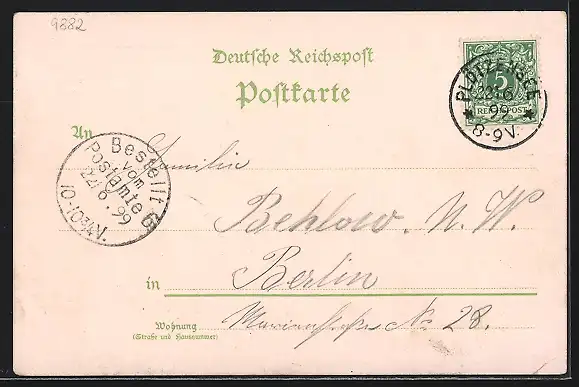 9882
Deutsche Reichspost
Postkarte
PLÖTZENSEE
22/6
99
8-9V.
5
REICHSPOST
An
Familie
Bestellt
vom
Postamte 6
22/6.99
10-10¾V.
Behlow. N. W.
in Berlin
Wohnung
(Straße und Hausnummer)
No 28.